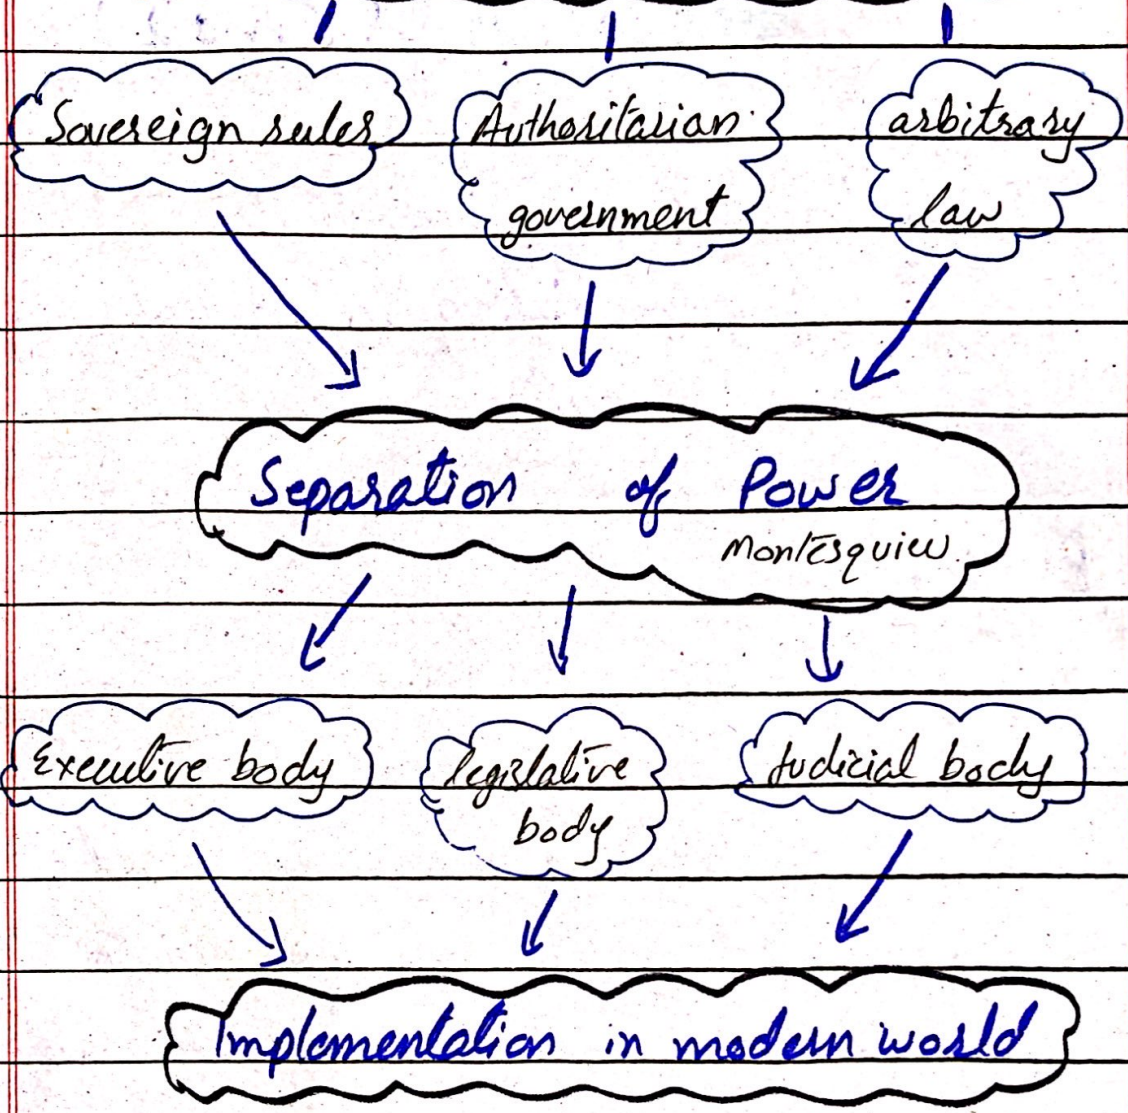 Sovereign ruler
Authoritarian
government
arbitrary
law
Separation of Power
Montesquieu
Executive body
legislative
body
Judicial body
Implementation in modern world